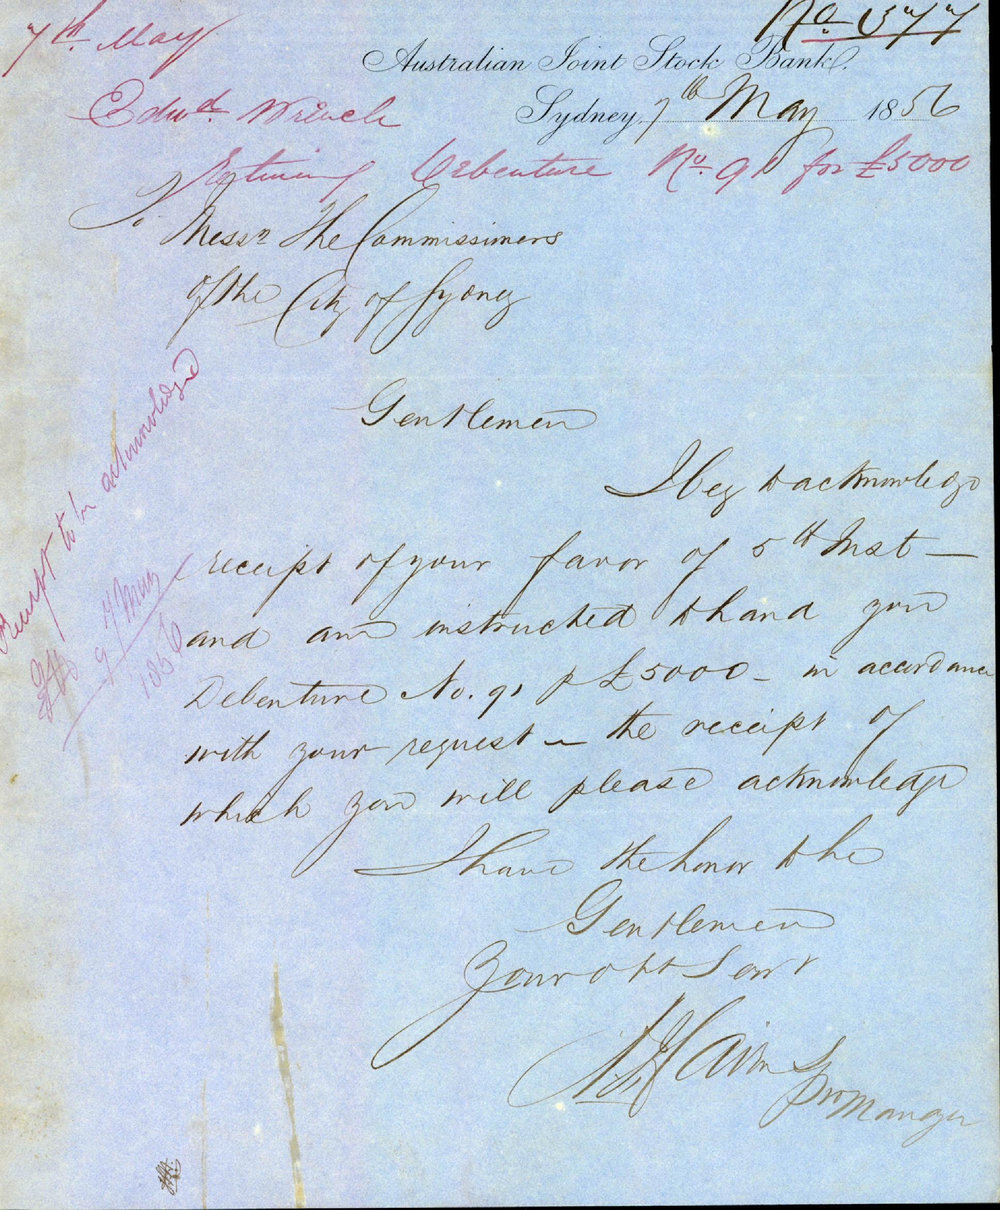 7th May
No 577
Australian Joint Stock Bank
Sydney, 7th May 1856
Edwd. Wrench
Debenture No. 91 for £5000
To
Messrs The Commissioners
of the City of Sydney
Gentlemen
I beg to acknowledge
receipt of your favor of 5th Inst —
and am instructed to hand you
Debenture No. 91 p £5000 — in accordance
with your request — the receipt of
which you will please acknowledge
I have the honor to be
Gentlemen
Your obt Servt
Pro Manager
Receipt to be acknowledged
9/ May
1856